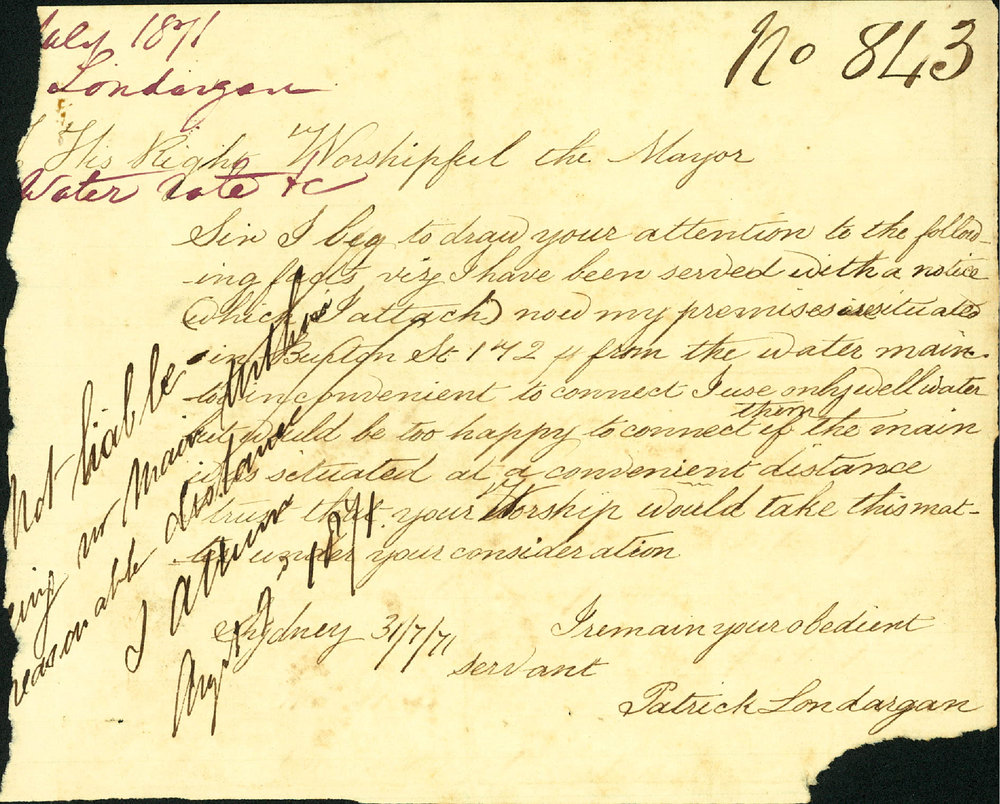 July 1871
No 843
Londargan
His Right Worshipful the Mayor
Water rate &c
Sir I beg to draw your attention to the follow-
ing facts viz I have been served with a notice
(which I attach) now my premises are situated
in St 172 from the water main
too inconvenient to connect I use only well water
but would be too happy to connect if the main
them
is situated at a convenient distance
trust that your Worship would take this mat-
ter under your consideration
Sydney 31/7/71 I remain your obedient
servant
Patrick Londargan
Not liable
being no main within
reasonable distance
I
Augt 2 1871